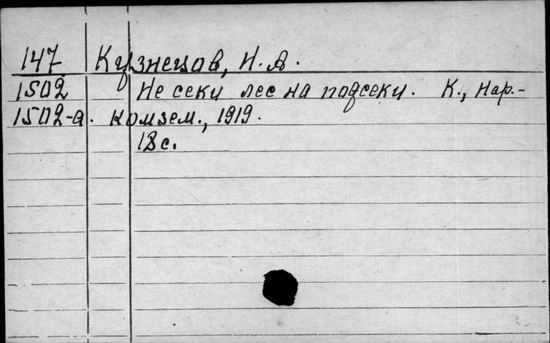 147 Кузнецов, Н. А.
1502 Не секи лес на подсеки. К., Нар.-
1502-а. комзем., 1919.
18 с.